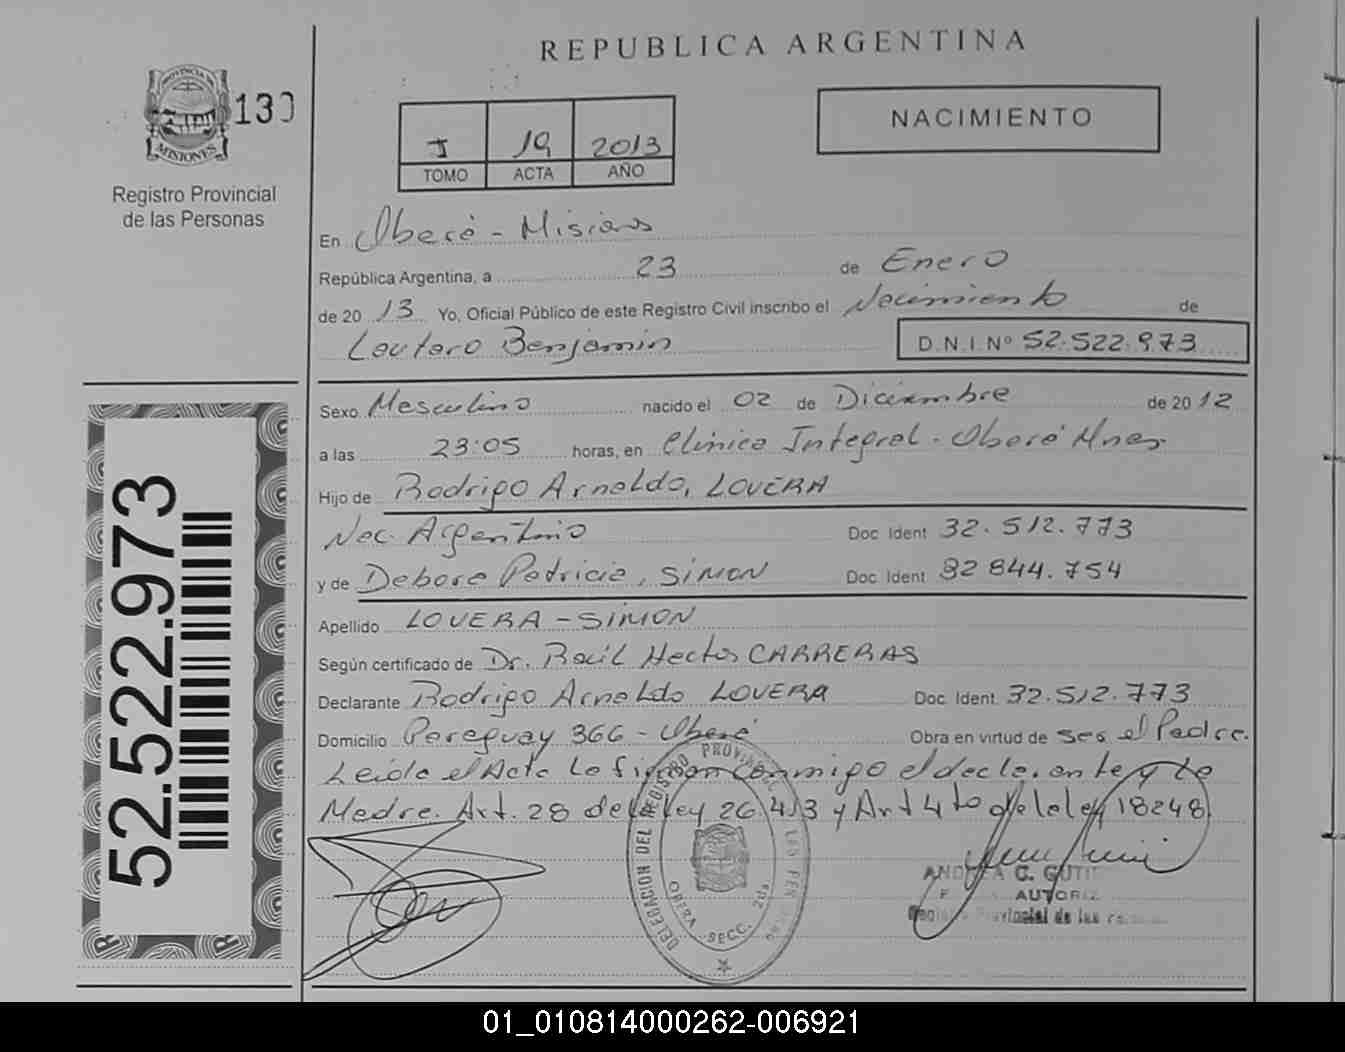 REPUBLICA ARGENTINA
PROVINCIA DE
MISIONES
130
Registro Provincial
de las Personas
I 19 2013
TOMO ACTA AÑO
NACIMIENTO
En Oberá - Misiones
República Argentina, a 23 de Enero
de 20 13 Yo, Oficial Público de este Registro Civil inscribo el Nacimiento de
Lautaro Benjamin D.N.I Nº 52.522.973
Sexo Masculino nacido el 02 de Diciembre de 20 12
a las 23:05 horas, en Clínica Integral - Oberá Mnes
Hijo de Rodrigo Arnaldo, LOVERA
Nac. Argentino Doc Ident 32.512.773
y de Debora Patricia, SIMON Doc Ident 32 844.754
Apellido LOVERA - SIMON
Según certificado de Dr. Raúl Hector CARRERAS
Declarante Rodrigo Arnaldo LOVERA Doc Ident. 32.512.773
Domicilio Paraguay 366 - Oberá Obra en virtud de ser el Padre.
Leída el Acta la firman conmigo el declarante y la
Madre. Art. 28 de la ley 26.413 y Art 4to de la ley 18248
52.522.973
DELEGACION DEL REGISTRO PROVINCIAL DE LAS PERSONAS
OBERA SECC. 2da
ANDREA C. GUTI
AUTORIZ
Registro Provincial de las
01_010814000262-006921